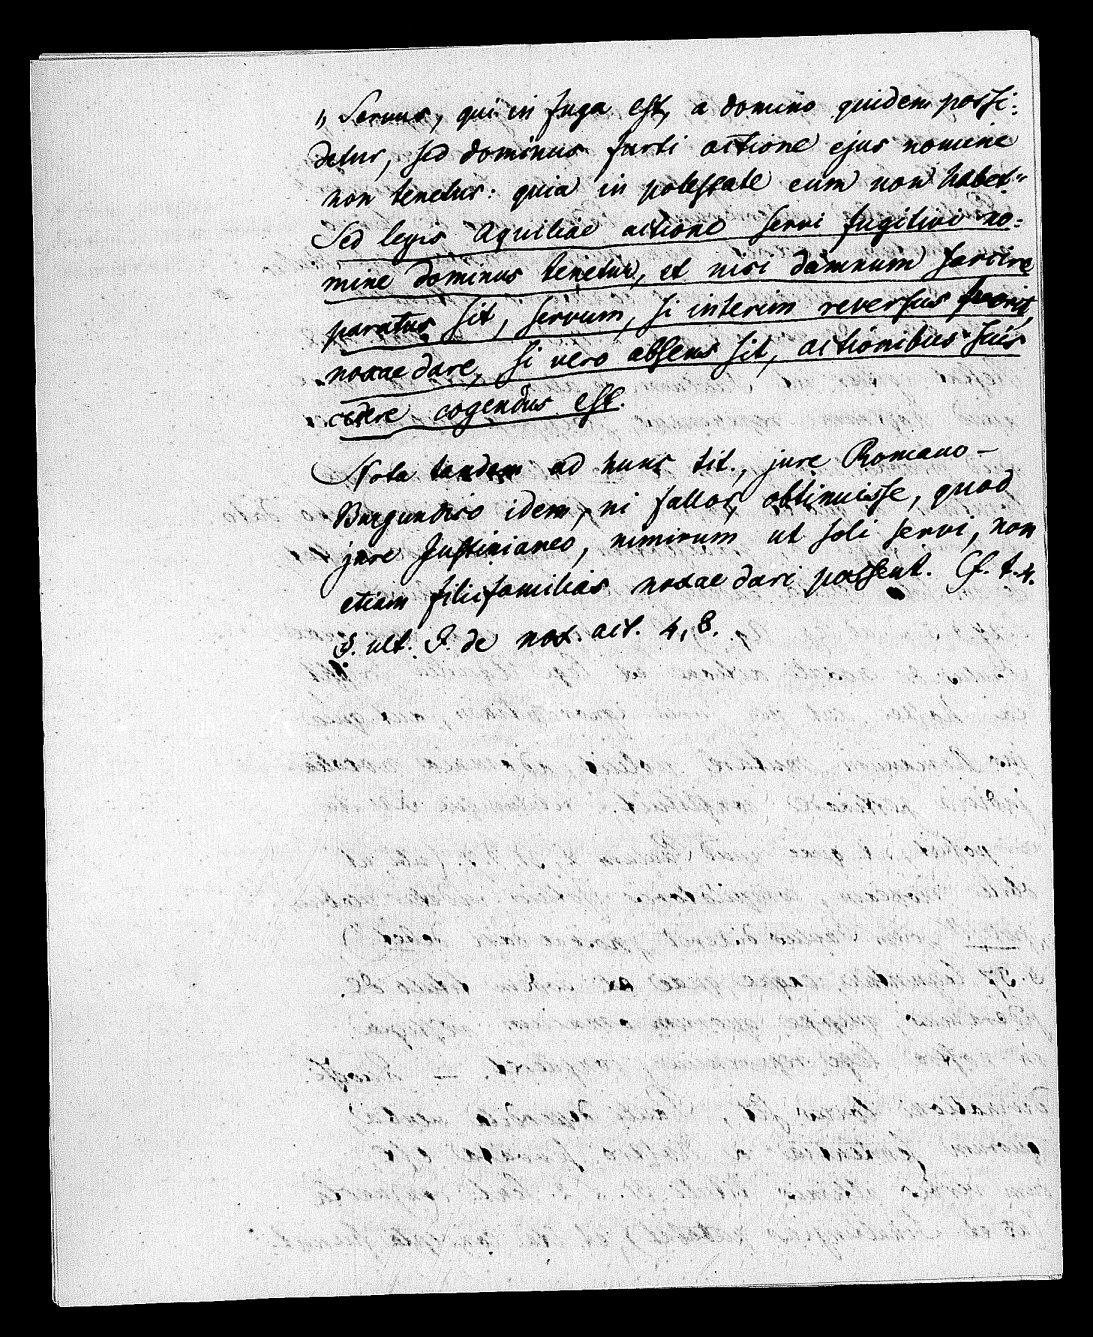 „ Servus, qui in fuga est, a domino quidem possi:
detur, sed dominus furti actione ejus nomine
non tenetur: quia in potestate eum non habet."
Sed legis Aquiliae actione servi fugitivi no:
mine dominus tenetur, et nisi damnum sarcire
paratus sit, servum, si interim reversus fuerit,
noxae dare, si vero absens sit, actionibus suis
cedere cogendus est.
Nota tandem ad hunc tit., jure Romano-
Burgundico idem, ni fallor, obtinuisse, quod
jure Justinianeo, nimirum ut soli servi, non
etiam filiifamilias noxae dari possent. Cf. t. 4.
§. ult. I. de nox. act. 4, 8.